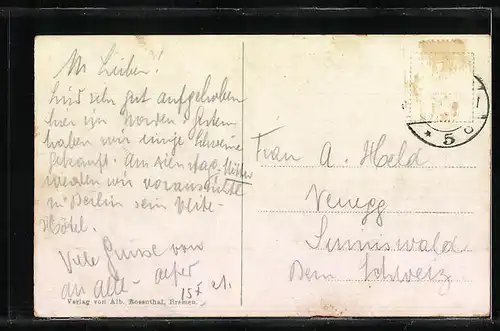 M. Lieben!
Sind sehr gut aufgehoben
hier im Norden. Gestern
haben wir einige Schweine
gekauft. Am
werden wir voraussichtlich
in Berlin sein
Hotel.
Viele Grüsse von
an alle
15 21.
Verlag von Alb. Rosenthal, Bremen.
* 5
Frau A. Held
Venegg
Sumiswald
Bern Schweiz